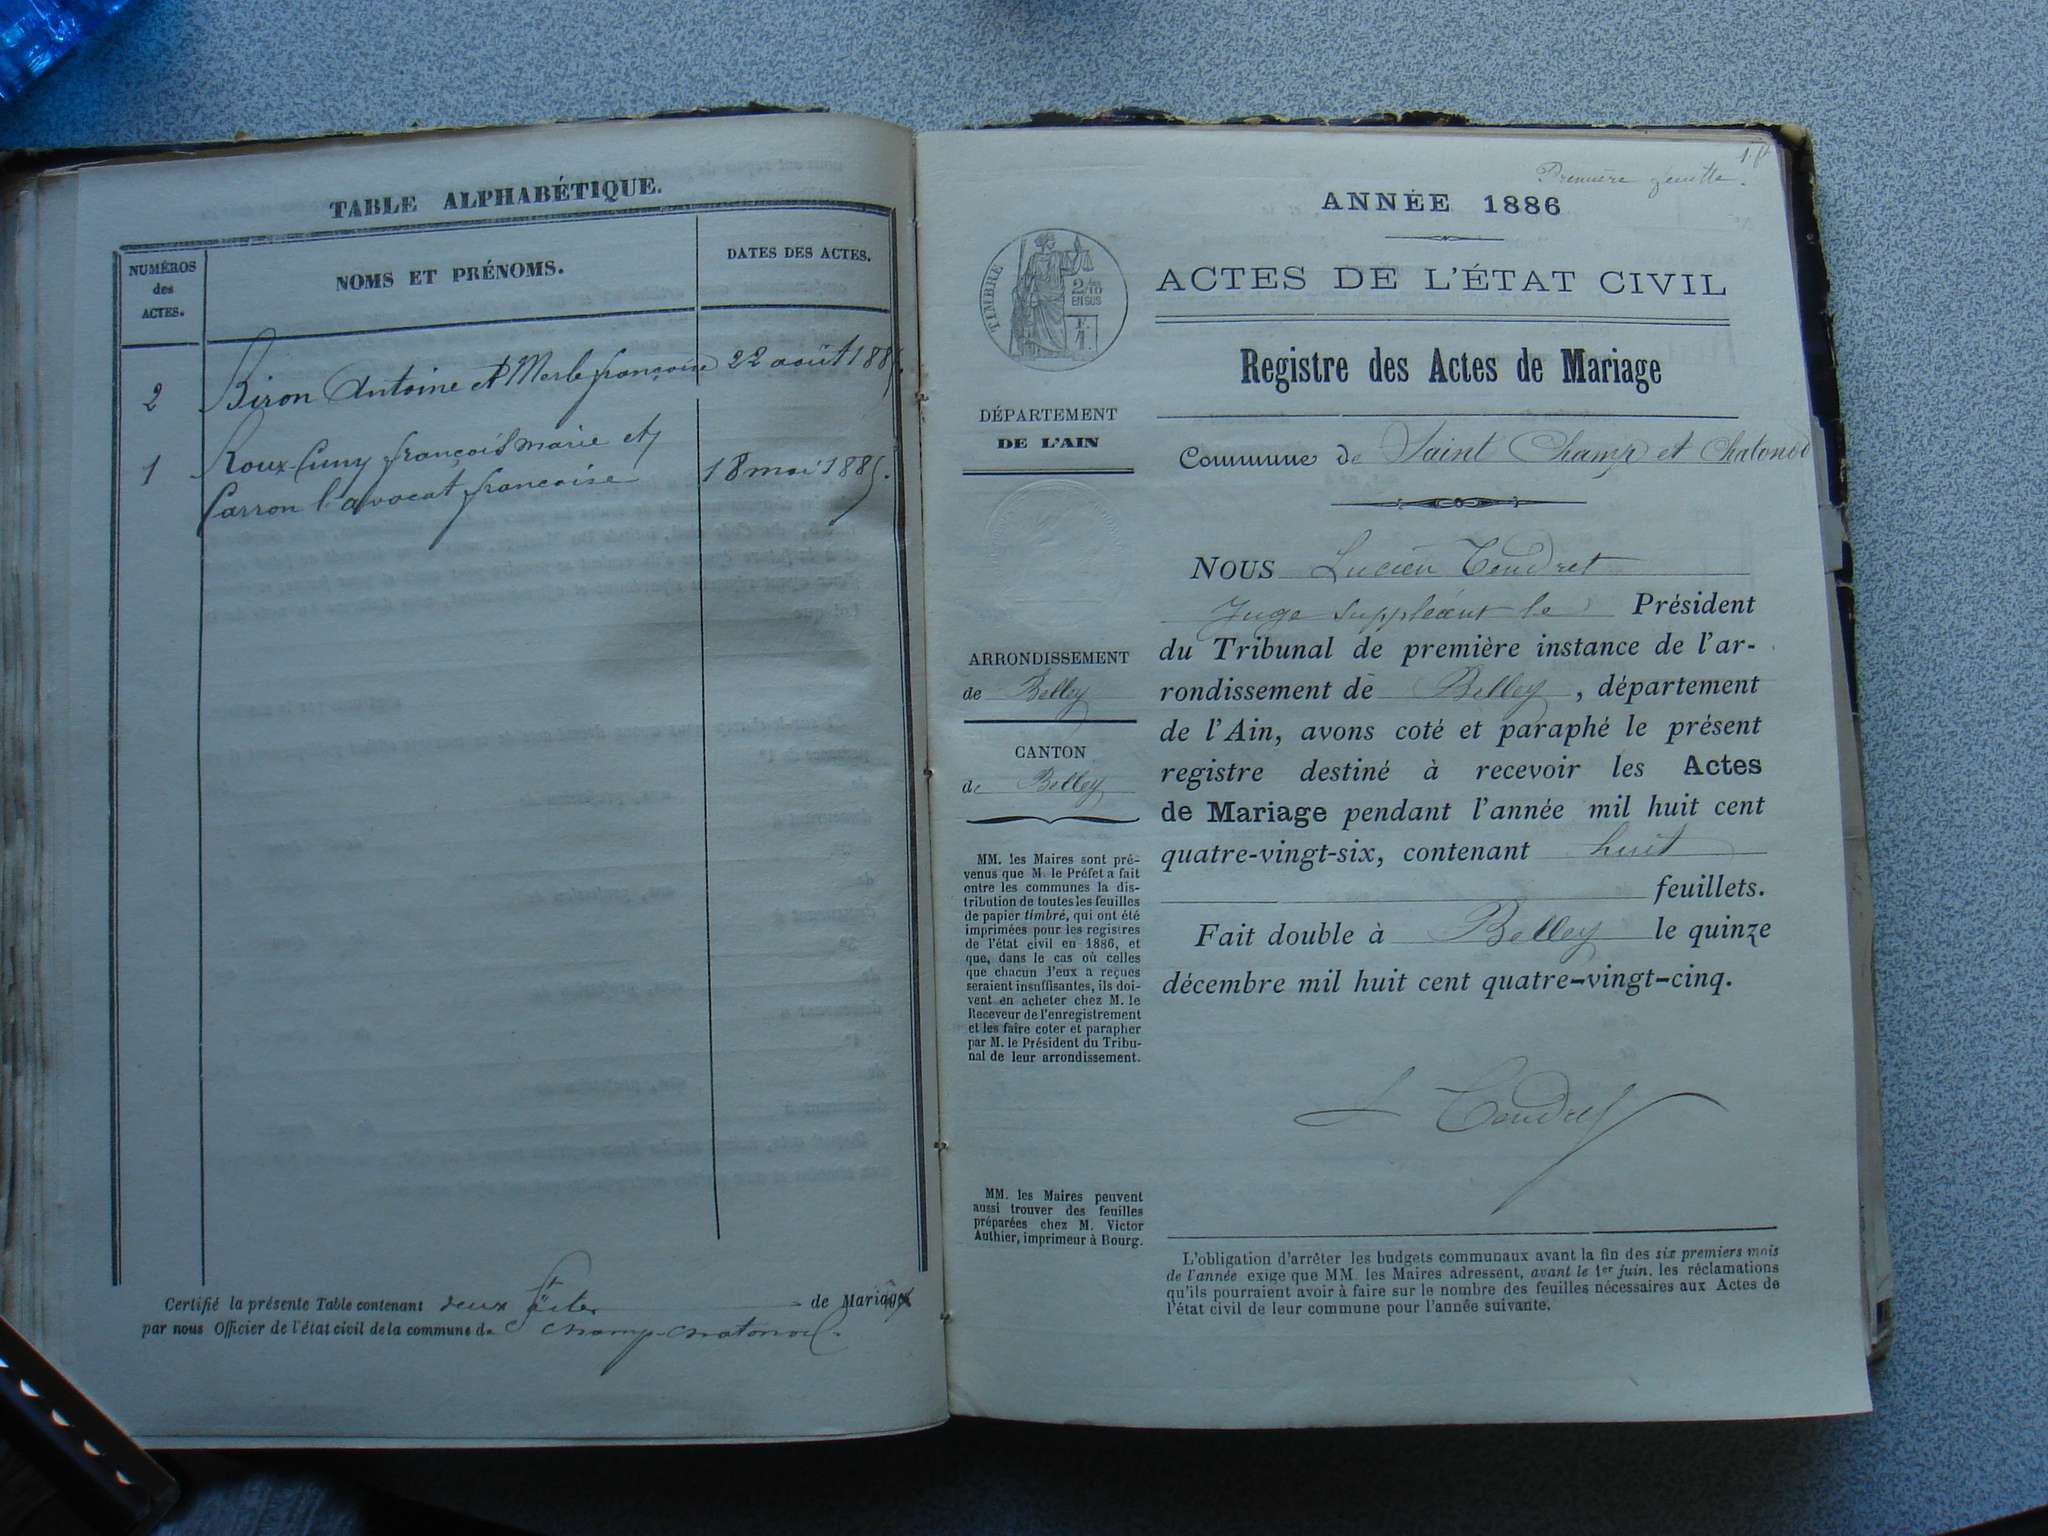 TABLE ALPHABÉTIQUE.
NUMÉROS
des
ACTES.
NOMS ET PRÉNOMS.
DATES DES ACTES.
2 Biron Antoine et Merle françoise 22 août 1885.
Roux-Cuny françois marie et
1 Carron l'avocat françoise 18 mai 1885.
Certifié la présente Table contenant deux actes de Mariage
par nous Officier de l'état civil de la commune de St champ-chatonod.
1. ft
Première feuille.
ANNÉE 1886
TIMBRE
2/10
EN SUS
F.
1
ACTES DE L'ÉTAT CIVIL
Registre des Actes de Mariage
DÉPARTEMENT
DE L'AIN
Commune de Saint Champ et Chatonod
NOUS Lucien Tendret
Juge suppléant le Président
du Tribunal de première instance de l'ar-
rondissement de Belley, département
de l'Ain, avons coté et paraphé le présent
registre destiné à recevoir les Actes
de Mariage pendant l'année mil huit cent
quatre-vingt-six, contenant huit
feuillets.
Fait double à Belley le quinze
décembre mil huit cent quatre-vingt-cinq.
L Tendret
ARRONDISSEMENT
de Belley
CANTON
de Belley
MM. les Maires sont pré-
venus que M. le Préfet a fait
entre les communes la dis-
tribution de toutes les feuilles
de papier timbré, qui ont été
imprimées pour les registres
de l'état civil en 1886, et
que, dans le cas où celles
que chacun d'eux a reçues
seraient insuffisantes, ils doi-
vent en acheter chez M. le
Receveur de l'enregistrement
et les faire coter et parapher
par M. le Président du Tribu-
nal de leur arrondissement.
MM. les Maires peuvent
aussi trouver des feuilles
préparées chez M. Victor
Authier, imprimeur à Bourg.
L'obligation d'arrêter les budgets communaux avant la fin des six premiers mois
de l'année exige que MM. les Maires adressent, avant le 1er juin, les réclamations
qu'ils pourraient avoir à faire sur le nombre des feuilles nécessaires aux Actes de
l'état civil de leur commune pour l'année suivante.